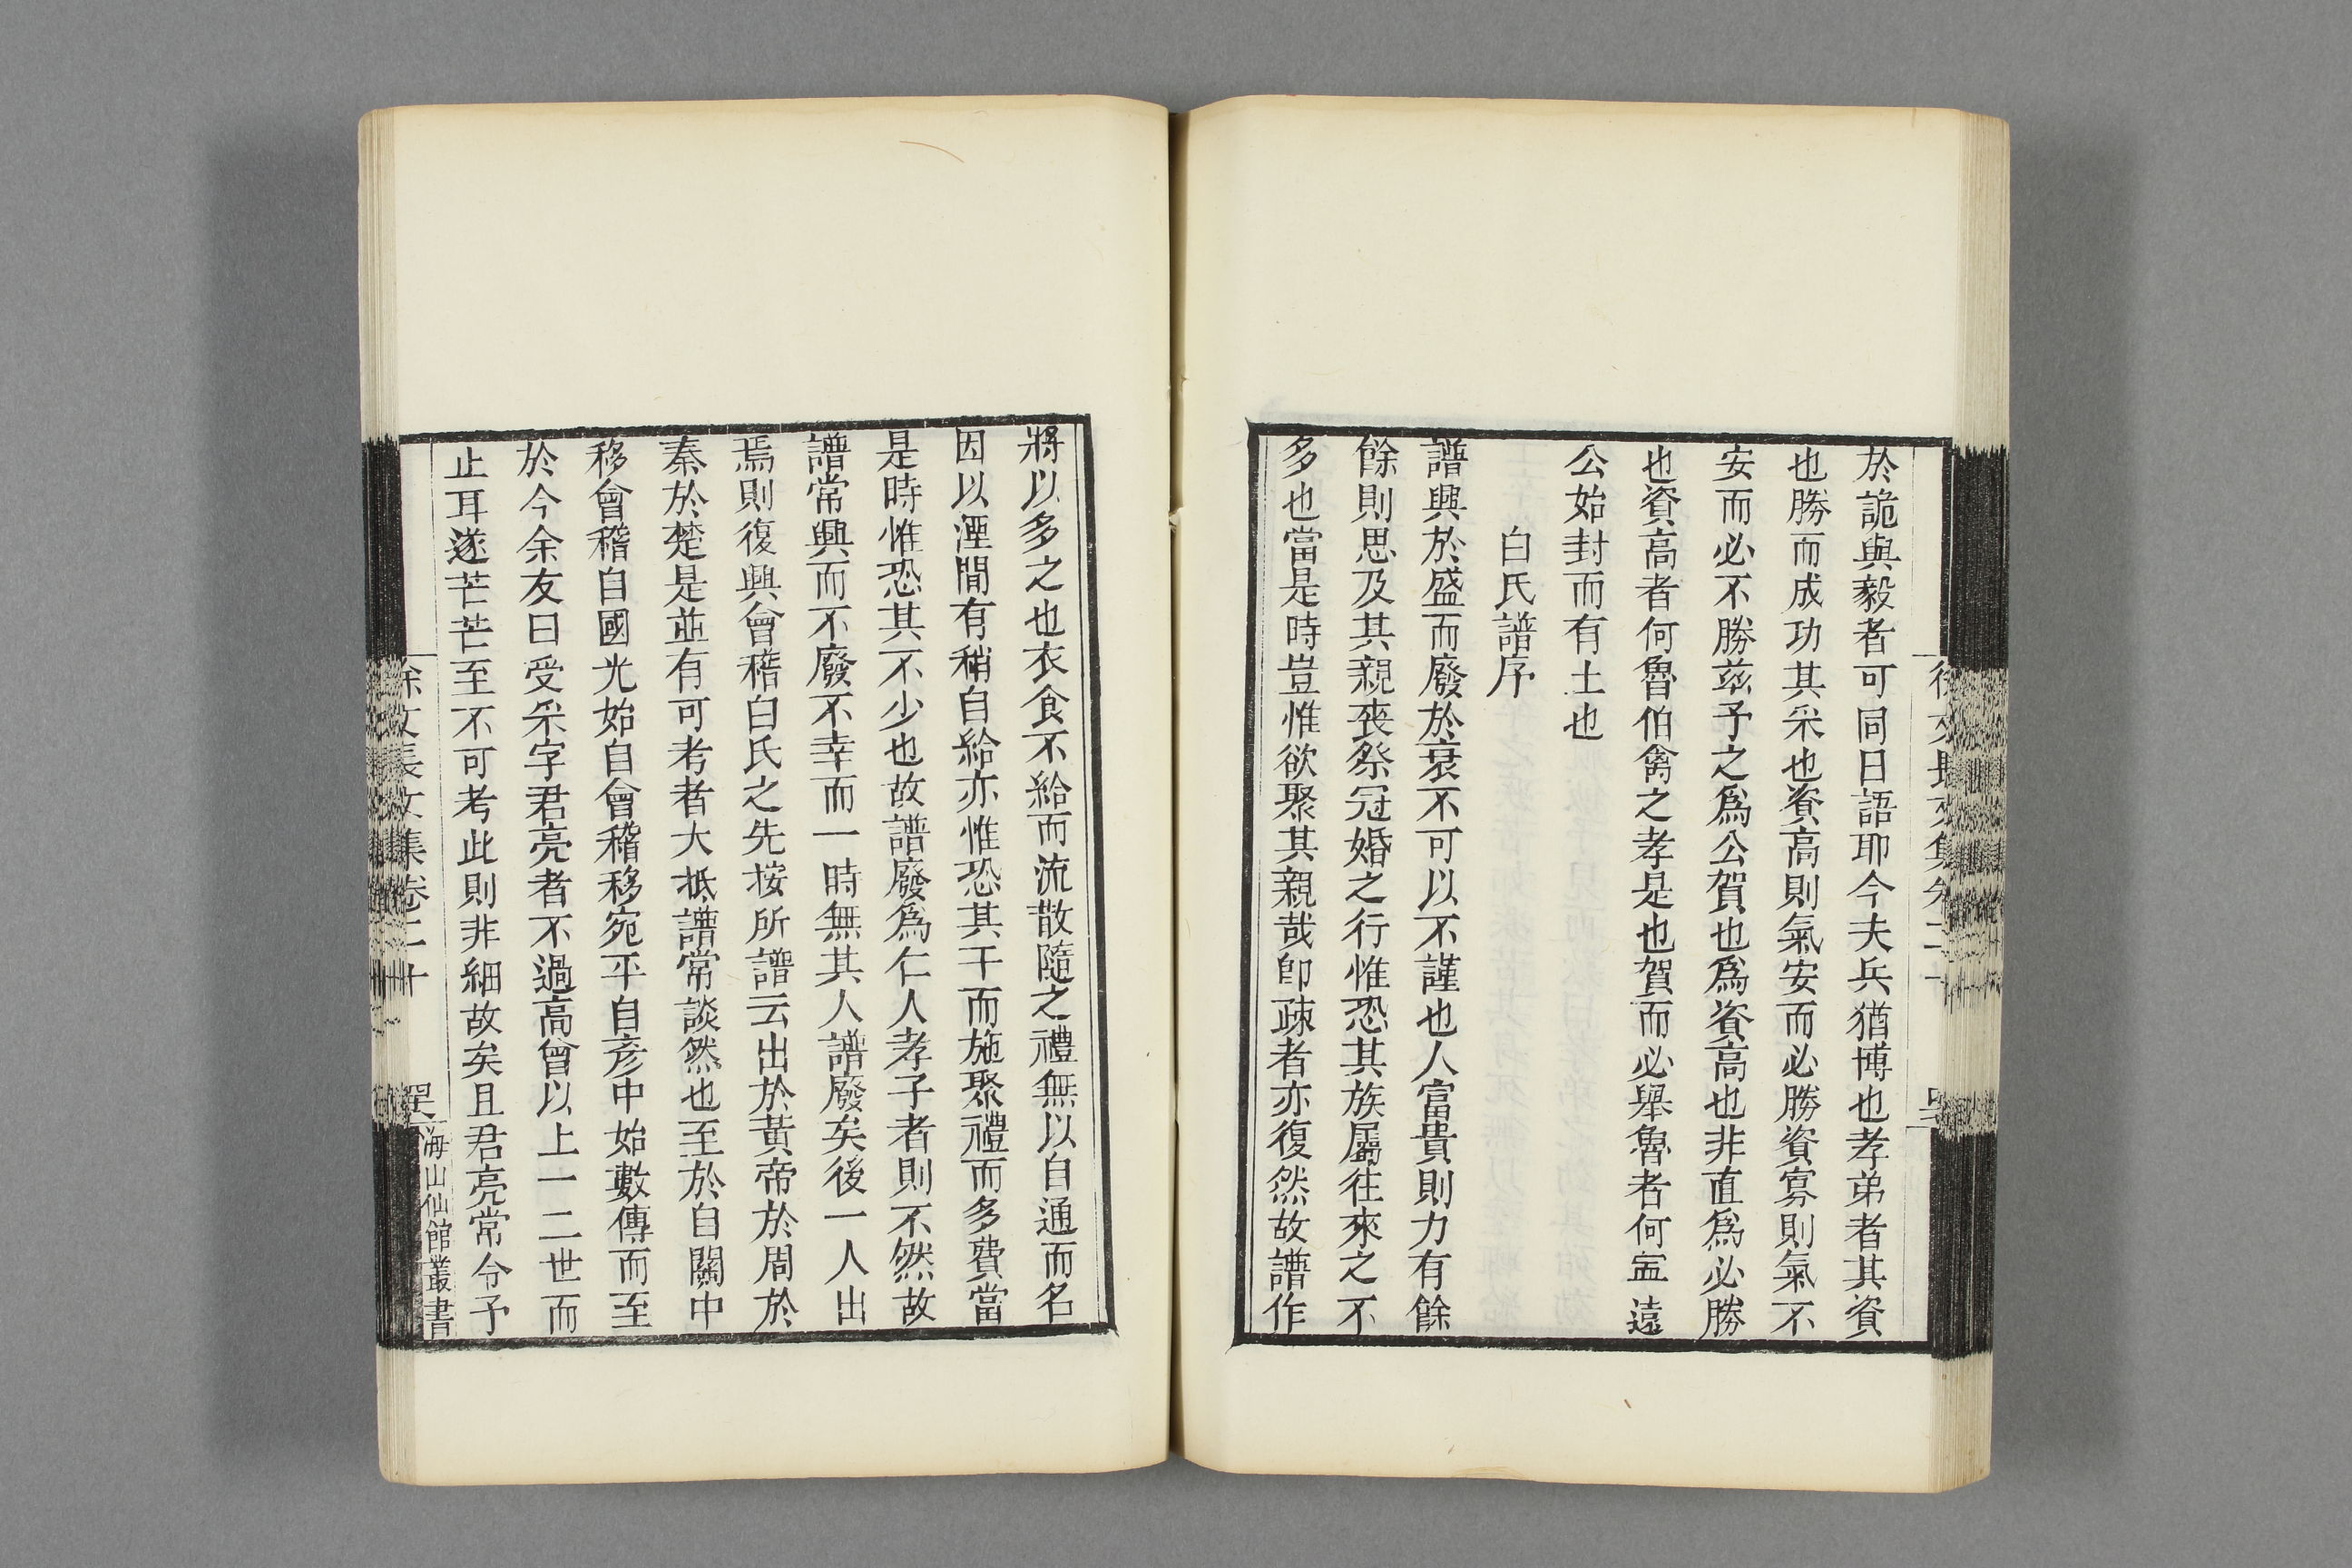 於詭與毅者可同日語耶今夫兵猶博也孝弟者其資
也勝而成功其采也資高則氣安而必勝資寡則氣不
安而必不勝茲予之爲公賀也爲資高也非直爲必勝
也資高者何魯伯禽之孝是也賀而必舉魯者何寍遠
公始封而有土也
白氏譜序
譜興於盛而廢於衰不可以不謹也人富貴則力有餘
餘則思及其親喪祭冠婚之行惟恐其族屬往來之不
多也當是時豈惟欲聚其親哉卽疎者亦復然故譜作
將以多之也衣食不給而流散隨之禮無以自通而名
因以湮間有稍自給亦惟恐其干而施聚禮而多費當
是時惟恐其不少也故譜廢爲仁人孝子者則不然故
譜常興而不廢不幸而一時無其人譜廢矣後一人出
焉則復興會稽白氏之先按所譜云出於黃帝於周於
秦於楚是並有可考者大抵譜常談然也至於自關中
移會稽自國光始自會稽移宛平自彥中始數傳而至
於今余友曰受采字君亮者不過高曾以上一二世而
止耳遂芒芒至不可考此則非細故矣且君亮常令予
徐文長文集卷二十
海山仙館叢書